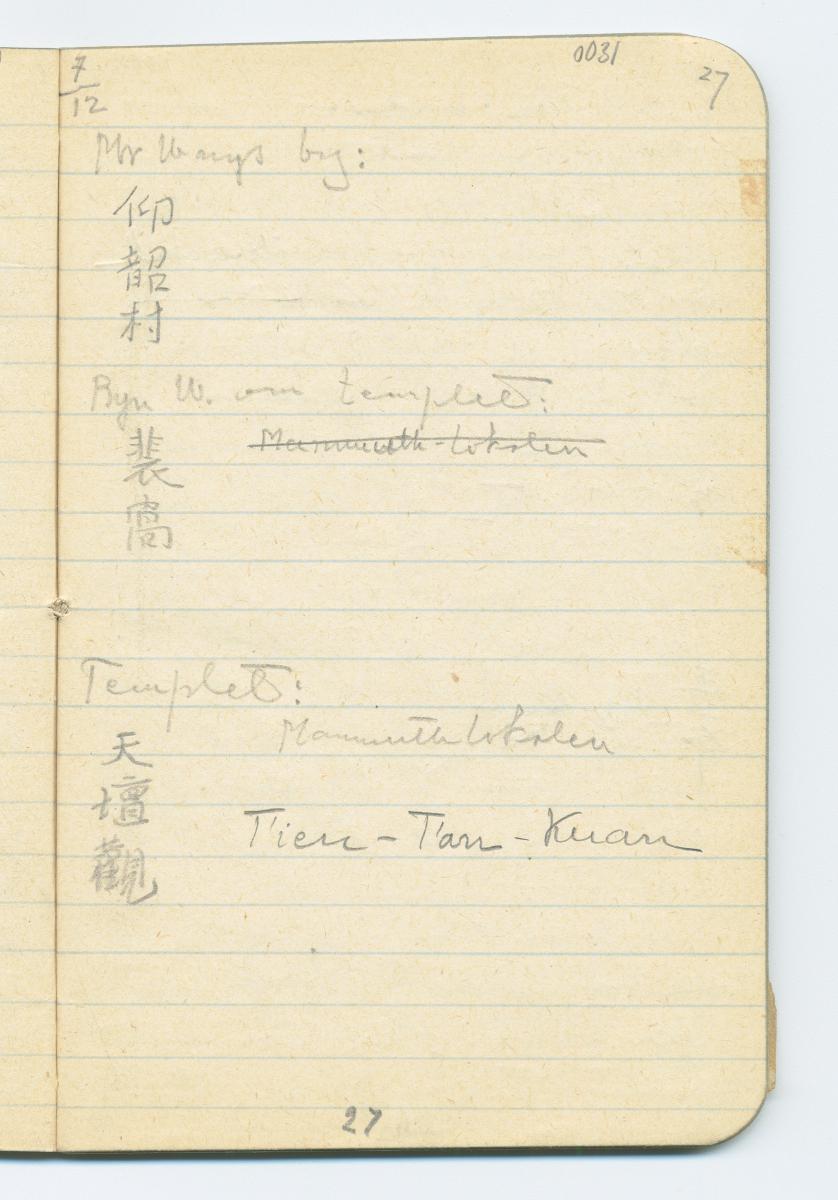 0031
27
7/12
Mr Wangs by:
仰
韶
村
Byn W. om templet:
Mammuth-lokalen
裴
窩
Templet:
Mammuthlokalen
天
壇
觀
T'ien-T'an-Kuan
27